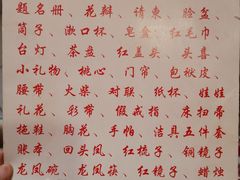 题名册、花瓣、请柬、脸盆、
筒子、漱口杯、皂盒、红毛巾、
台灯、茶盘、红盖头、头喜、
小礼物、桃心、门帘、包袱皮、
腰带、火柴、对联、纸杯、娃娃
礼花、彩带、假戒指、床扫帚
拖鞋、胸花、手帕、洁具五件套
账本、回头风、红梳子、铜镜子
龙凤碗、龙凤筷、红镜子、蜡烛